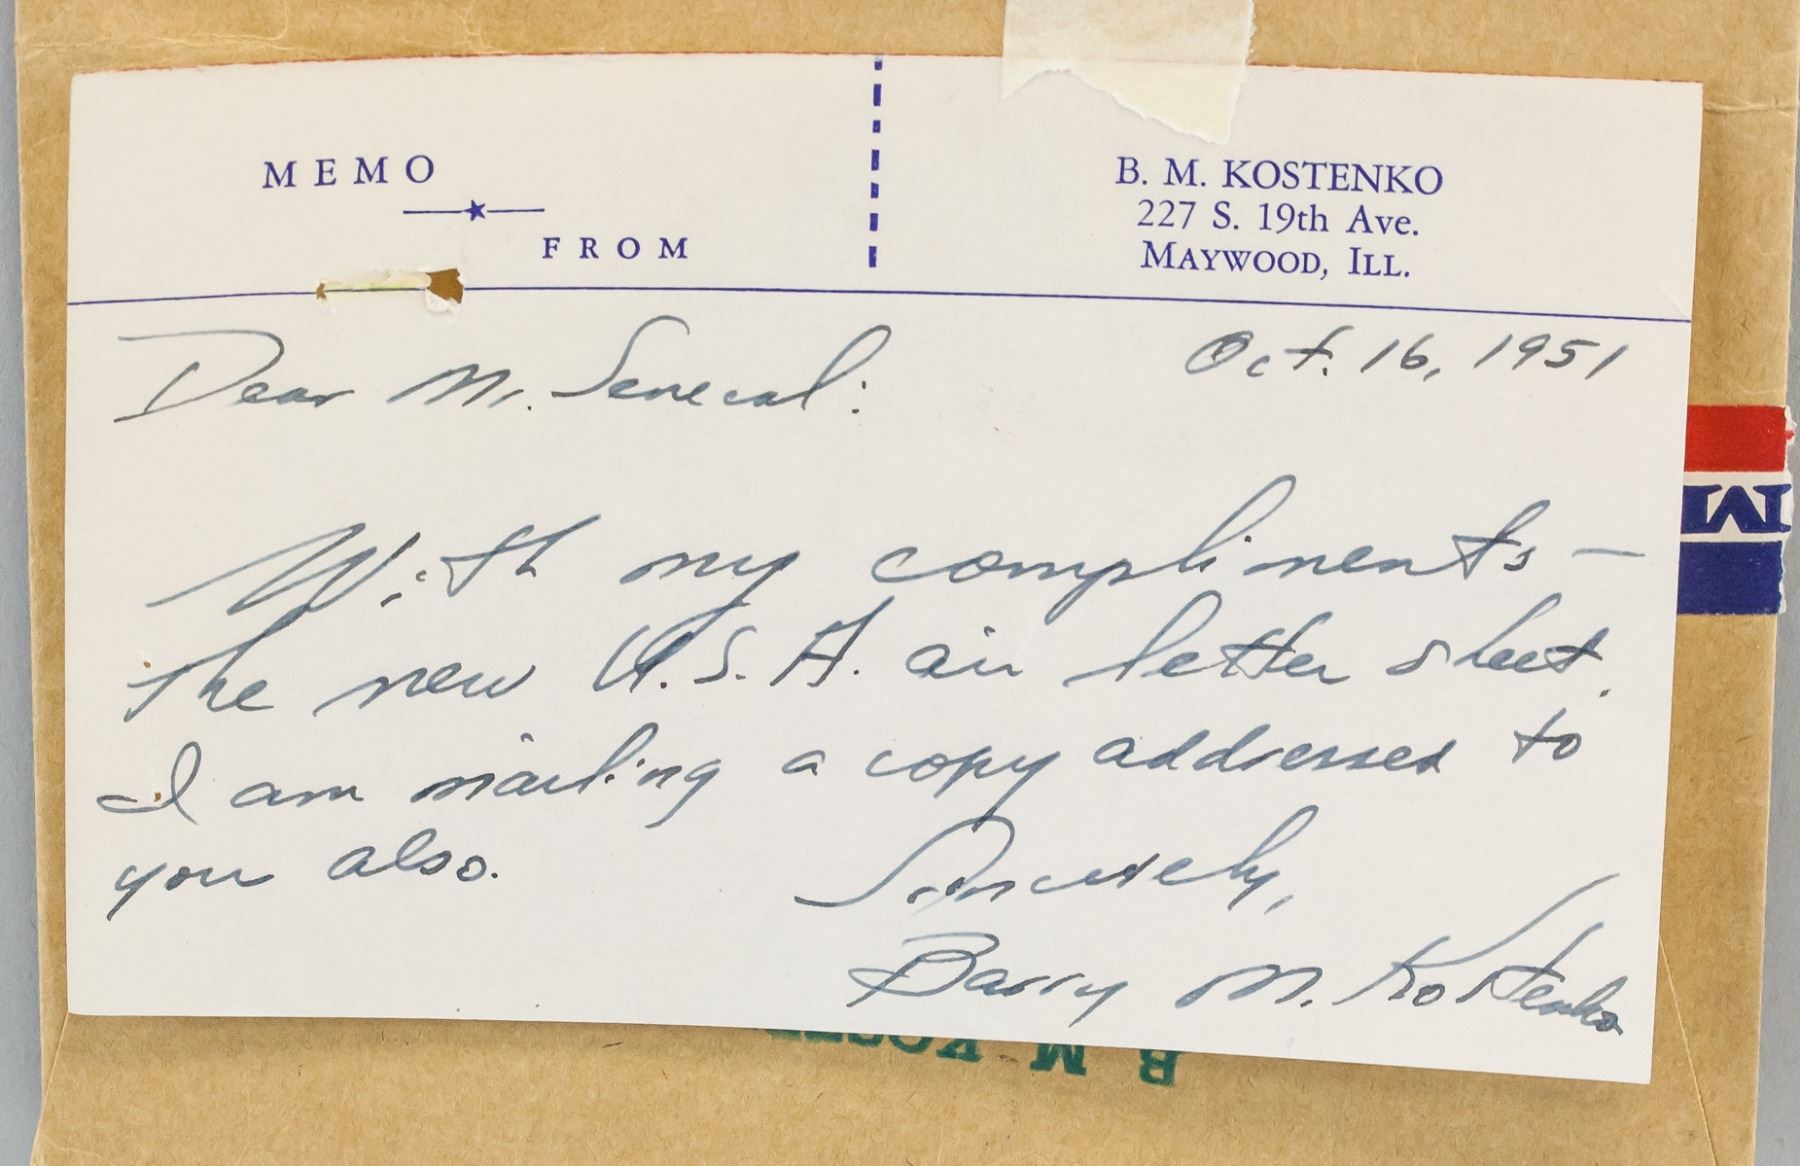 MEMO
FROM
B. M. KOSTENKO
227 S. 19th Ave.
MAYWOOD, ILL.
Oct. 16, 1951
Dear Mr. Senecal:
With my compliments —
the new U.S.A. air letter sheet.
I am mailing a copy addressed to
you also.
Sincerely,
Barry M. Kostenko
B M KOSTE